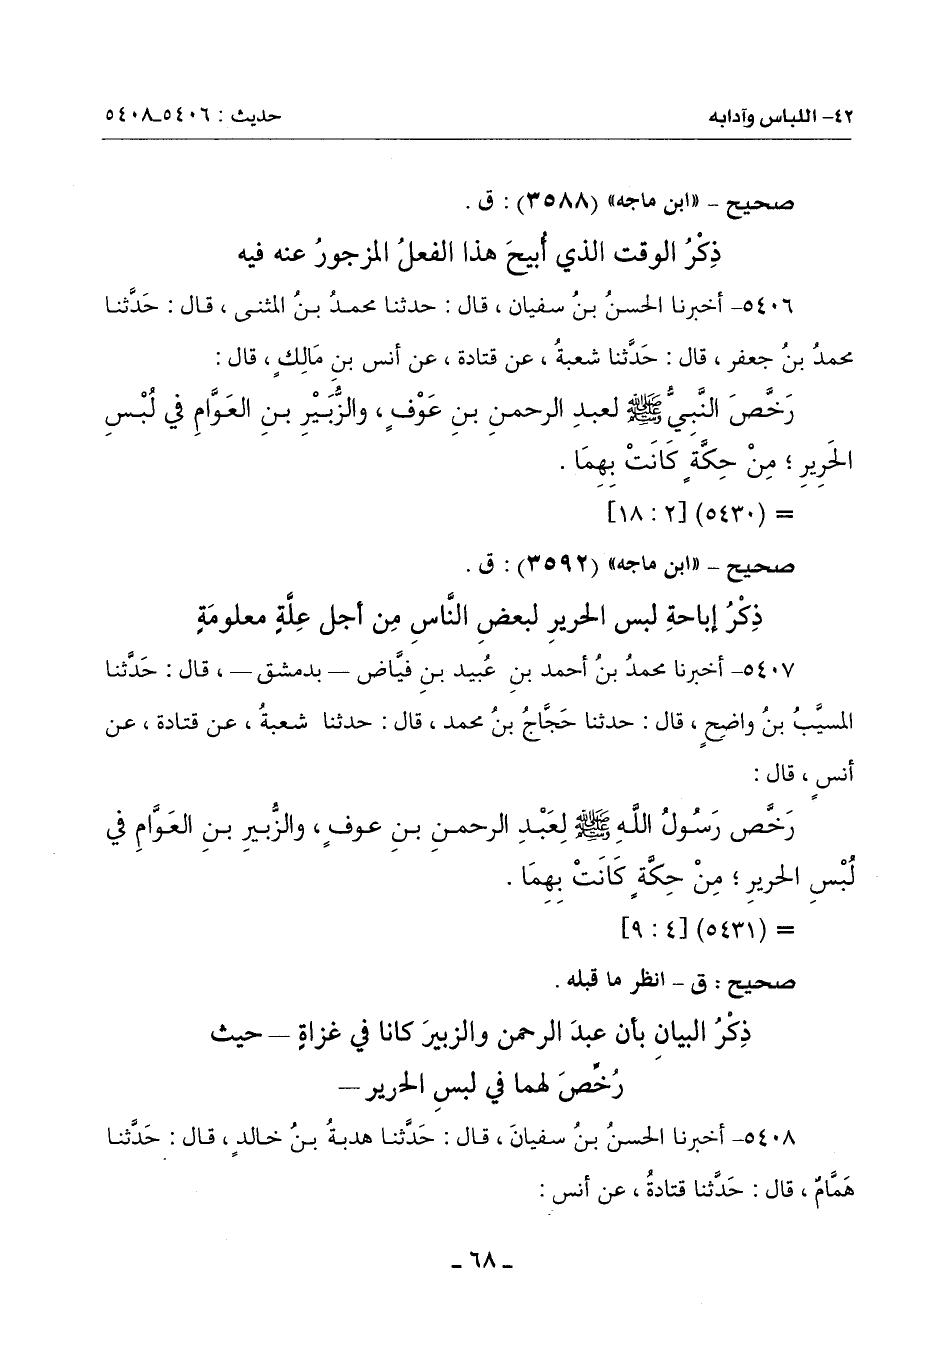 ٤٢- اللباس وآدابه حديث : ٥٤٠٦_٥٤٠٨
صحيح - «ابن ماجه» (٣٥٨٨) : ق .
ذِكْرُ الوقت الذي أُبيحَ هذا الفعلُ المزجورُ عنه فيه
٥٤٠٦- أخبرنا الحسنُ بنُ سفيان ، قال : حدثنا محمدُ بنُ المثنى ، قال : حَدَّثنا
محمدُ بنُ جعفر ، قال : حَدَّثنا شعبةُ ، عن قتادة ، عن أنس بنِ مَالِكٍ ، قال :
رَخَّصَ النَّبيُّ ﷺ لعبدِ الرحمنِ بنِ عَوْفٍ ، والزُّبَيْرِ بنِ العَوَّامِ في لُبْسِ
الحَرِيرِ ؛ مِنْ حِكَّةٍ كَانَتْ بِهِمَا .
= (٥٤٣٠) [٢ : ١٨]
صحيح - «ابن ماجه» (٣٥٩٢) : ق .
ذِكْرُ إباحةِ لبس الحريرِ لبعضِ النَّاس مِن أجل عِلَّةٍ معلومَةٍ
٥٤٠٧- أخبرنا محمدُ بنُ أحمد بنِ عُبيد بنِ فيَّاض – بدمشق – ، قال : حَدَّثنا
المسيَّبُ بنُ واضِحٍ ، قال : حدثنا حَجَّاجُ بنُ محمد ، قال : حدثنا شعبةُ ، عن قتادة ، عن
أنسٍ ، قال :
رَخَّص رَسُولُ اللَّهِ ﷺ لِعَبْدِ الرحمنِ بنِ عوفٍ ، والزُّبيرِ بنِ العَوَّامِ في
لُبْسِ الحريرِ ؛ مِنْ حِكَّةٍ كَانَتْ بِهِمَا .
= (٥٤٣١) [٤ : ٩]
صحيح : ق - انظر ما قبله .
ذِكْرُ البيانِ بأن عبدَ الرحمن والزبيرَ كانا في غزاةٍ – حيث
رُخِّصَ لهما في لبسِ الحرير –
٥٤٠٨- أخبرنا الحسنُ بنُ سفيانَ ، قال : حَدَّثنا هدبةُ بنُ خالدٍ ، قال : حَدَّثنا
هَمَّامٌ ، قال : حَدَّثنا قتادةُ ، عن أنس :
- ٦٨ -